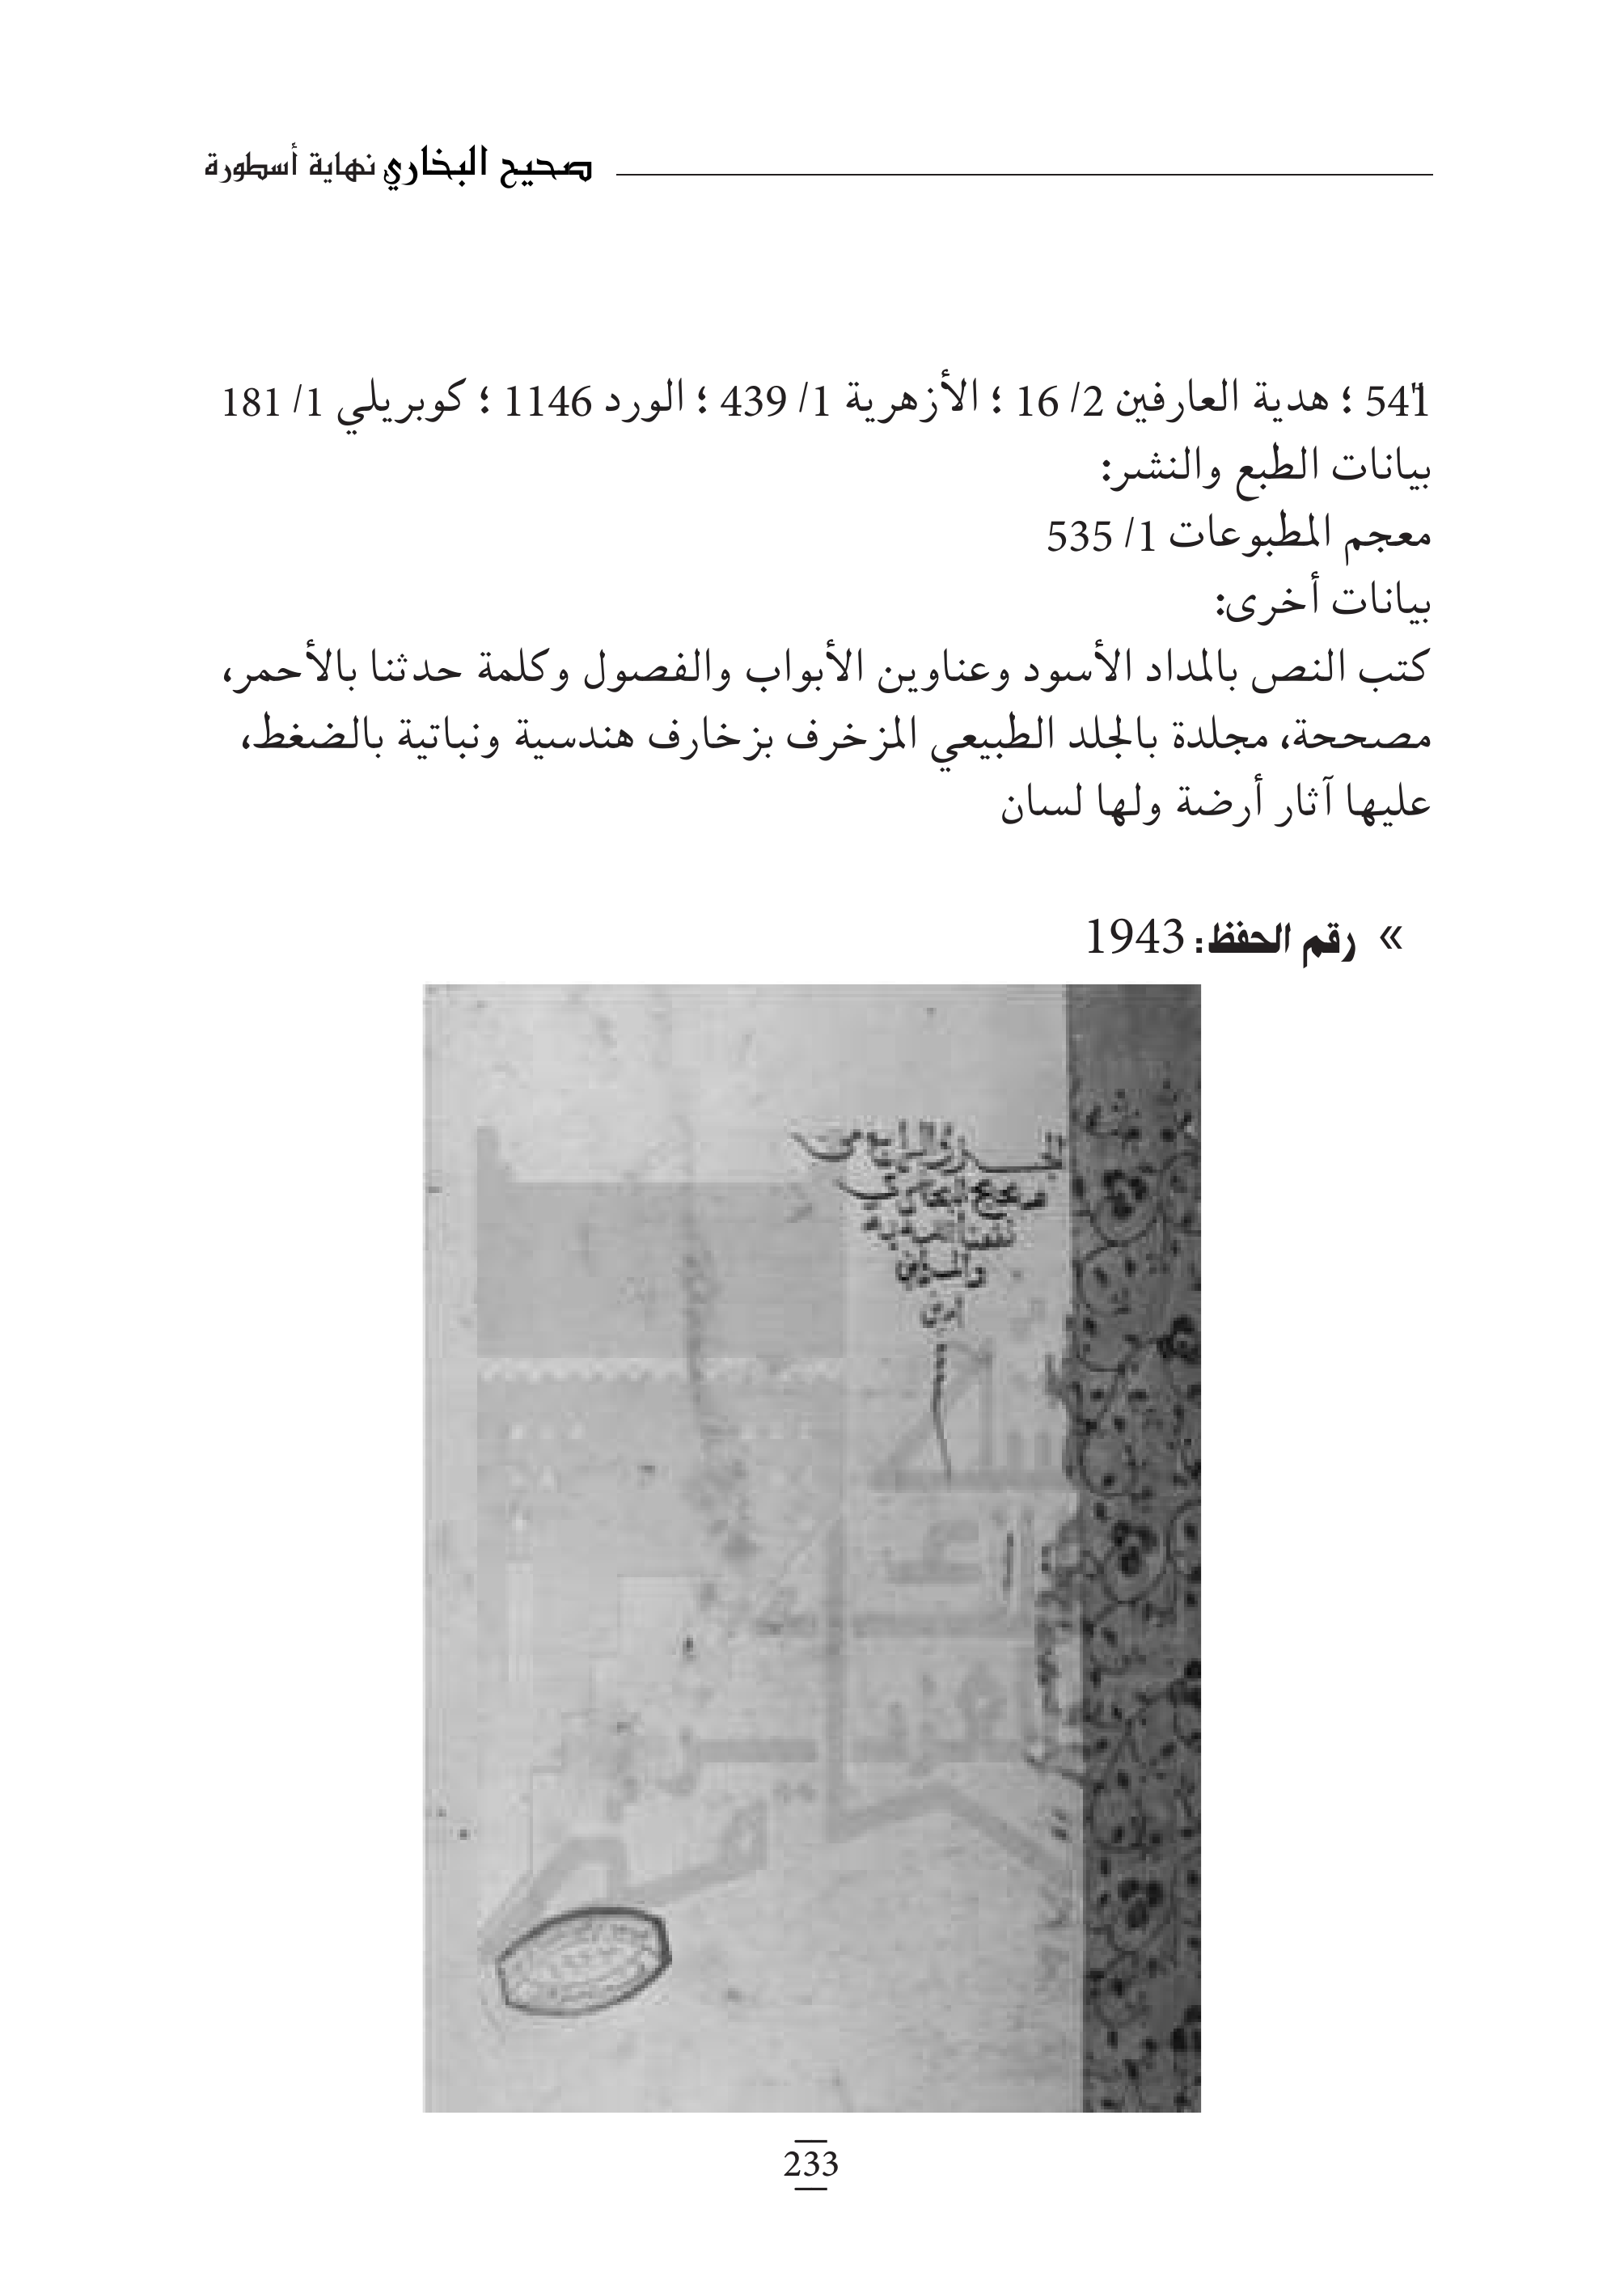 صحيح البخاري نهاية أسطورة
541 ؛ هدية العارفين 2/ 16 ؛ الأزهرية 1/ 439 ؛ الورد 1146 ؛ كوبريلي 1/ 181
بيانات الطبع والنشر:
معجم المطبوعات 1/ 535
بيانات أخرى:
كتب النص بالمداد الأسود وعناوين الأبواب والفصول وكلمة حدثنا بالأحمر،
مصححة، مجلدة بالجلد الطبيعي المزخرف بزخارف هندسية ونباتية بالضغط،
عليها آثار أرضة ولها لسان
» رقم الحفظ: 1943
صحيح البخاري
والمسلمين
امين
233